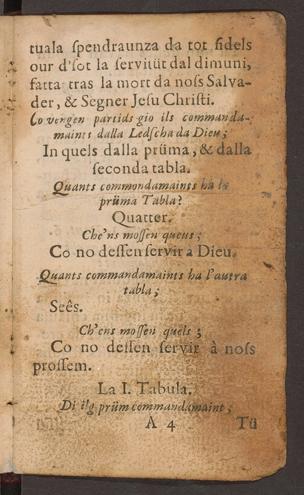 tuala spendraunza da tot fidels
our d'sot la servitüt dal dimuni,
fatta tras la mort da noss Salva-
der, & Segner Jesu Christi.
Co vergen partids gio ils commanda-
maints dalla Ledscha da Dieu;
In quels dalla prüma, & dalla
seconda tabla.
Quants commondamaints ha la
prüma Tabla?
Quatter.
Che'ns mossen queus;
Co no dessen servir a Dieu.
Quants commandamaints ha l'autra
tabla;
Seês.
Ch'ens mossen quels;
Co no dessen servir à noss
prossem.
La I. Tabula.
Di ilg prüm commandamaint;
A 4 Tü